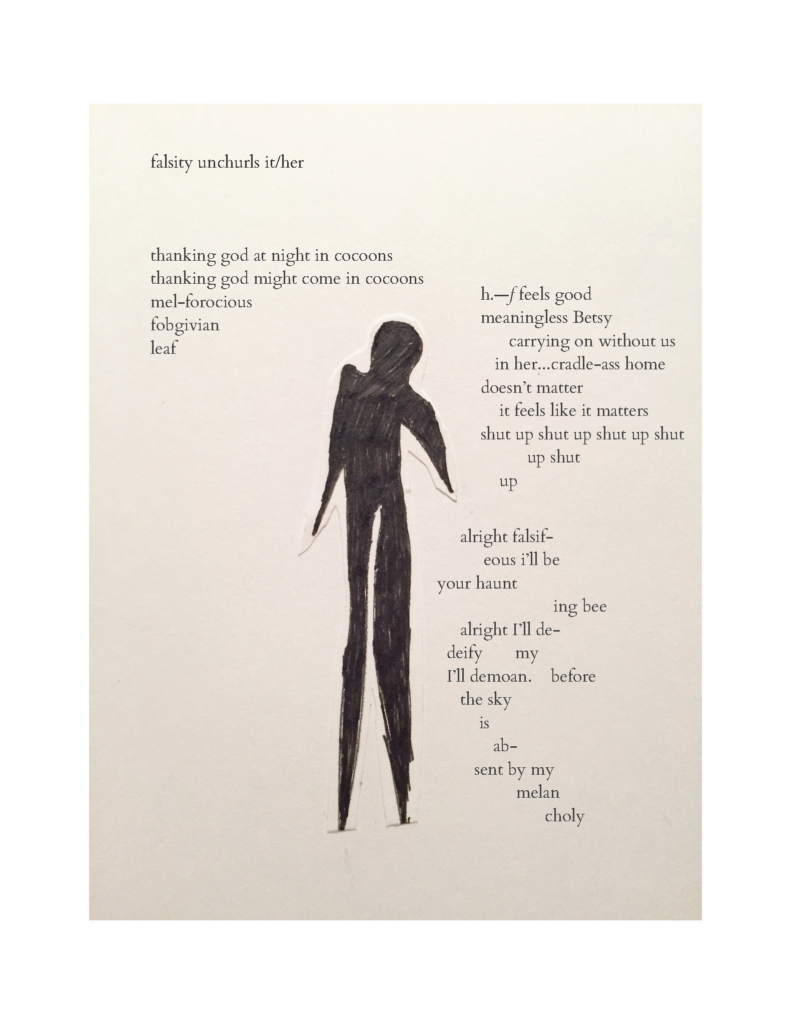 falsity unchurls it/her
thanking god at night in cocoons
thanking god might come in cocoons
mel-forocious
fobgivian
leaf
h.—f feels good
meaningless Betsy
carrying on without us
in her...cradle-ass home
doesn't matter
it feels like it matters
shut up shut up shut up shut
up shut
up
alright falsif-
eous i'll be
your haunt
ing bee
alright I'll de-
deify my
I'll demoan. before
the sky
is
ab-
sent by my
melan
choly